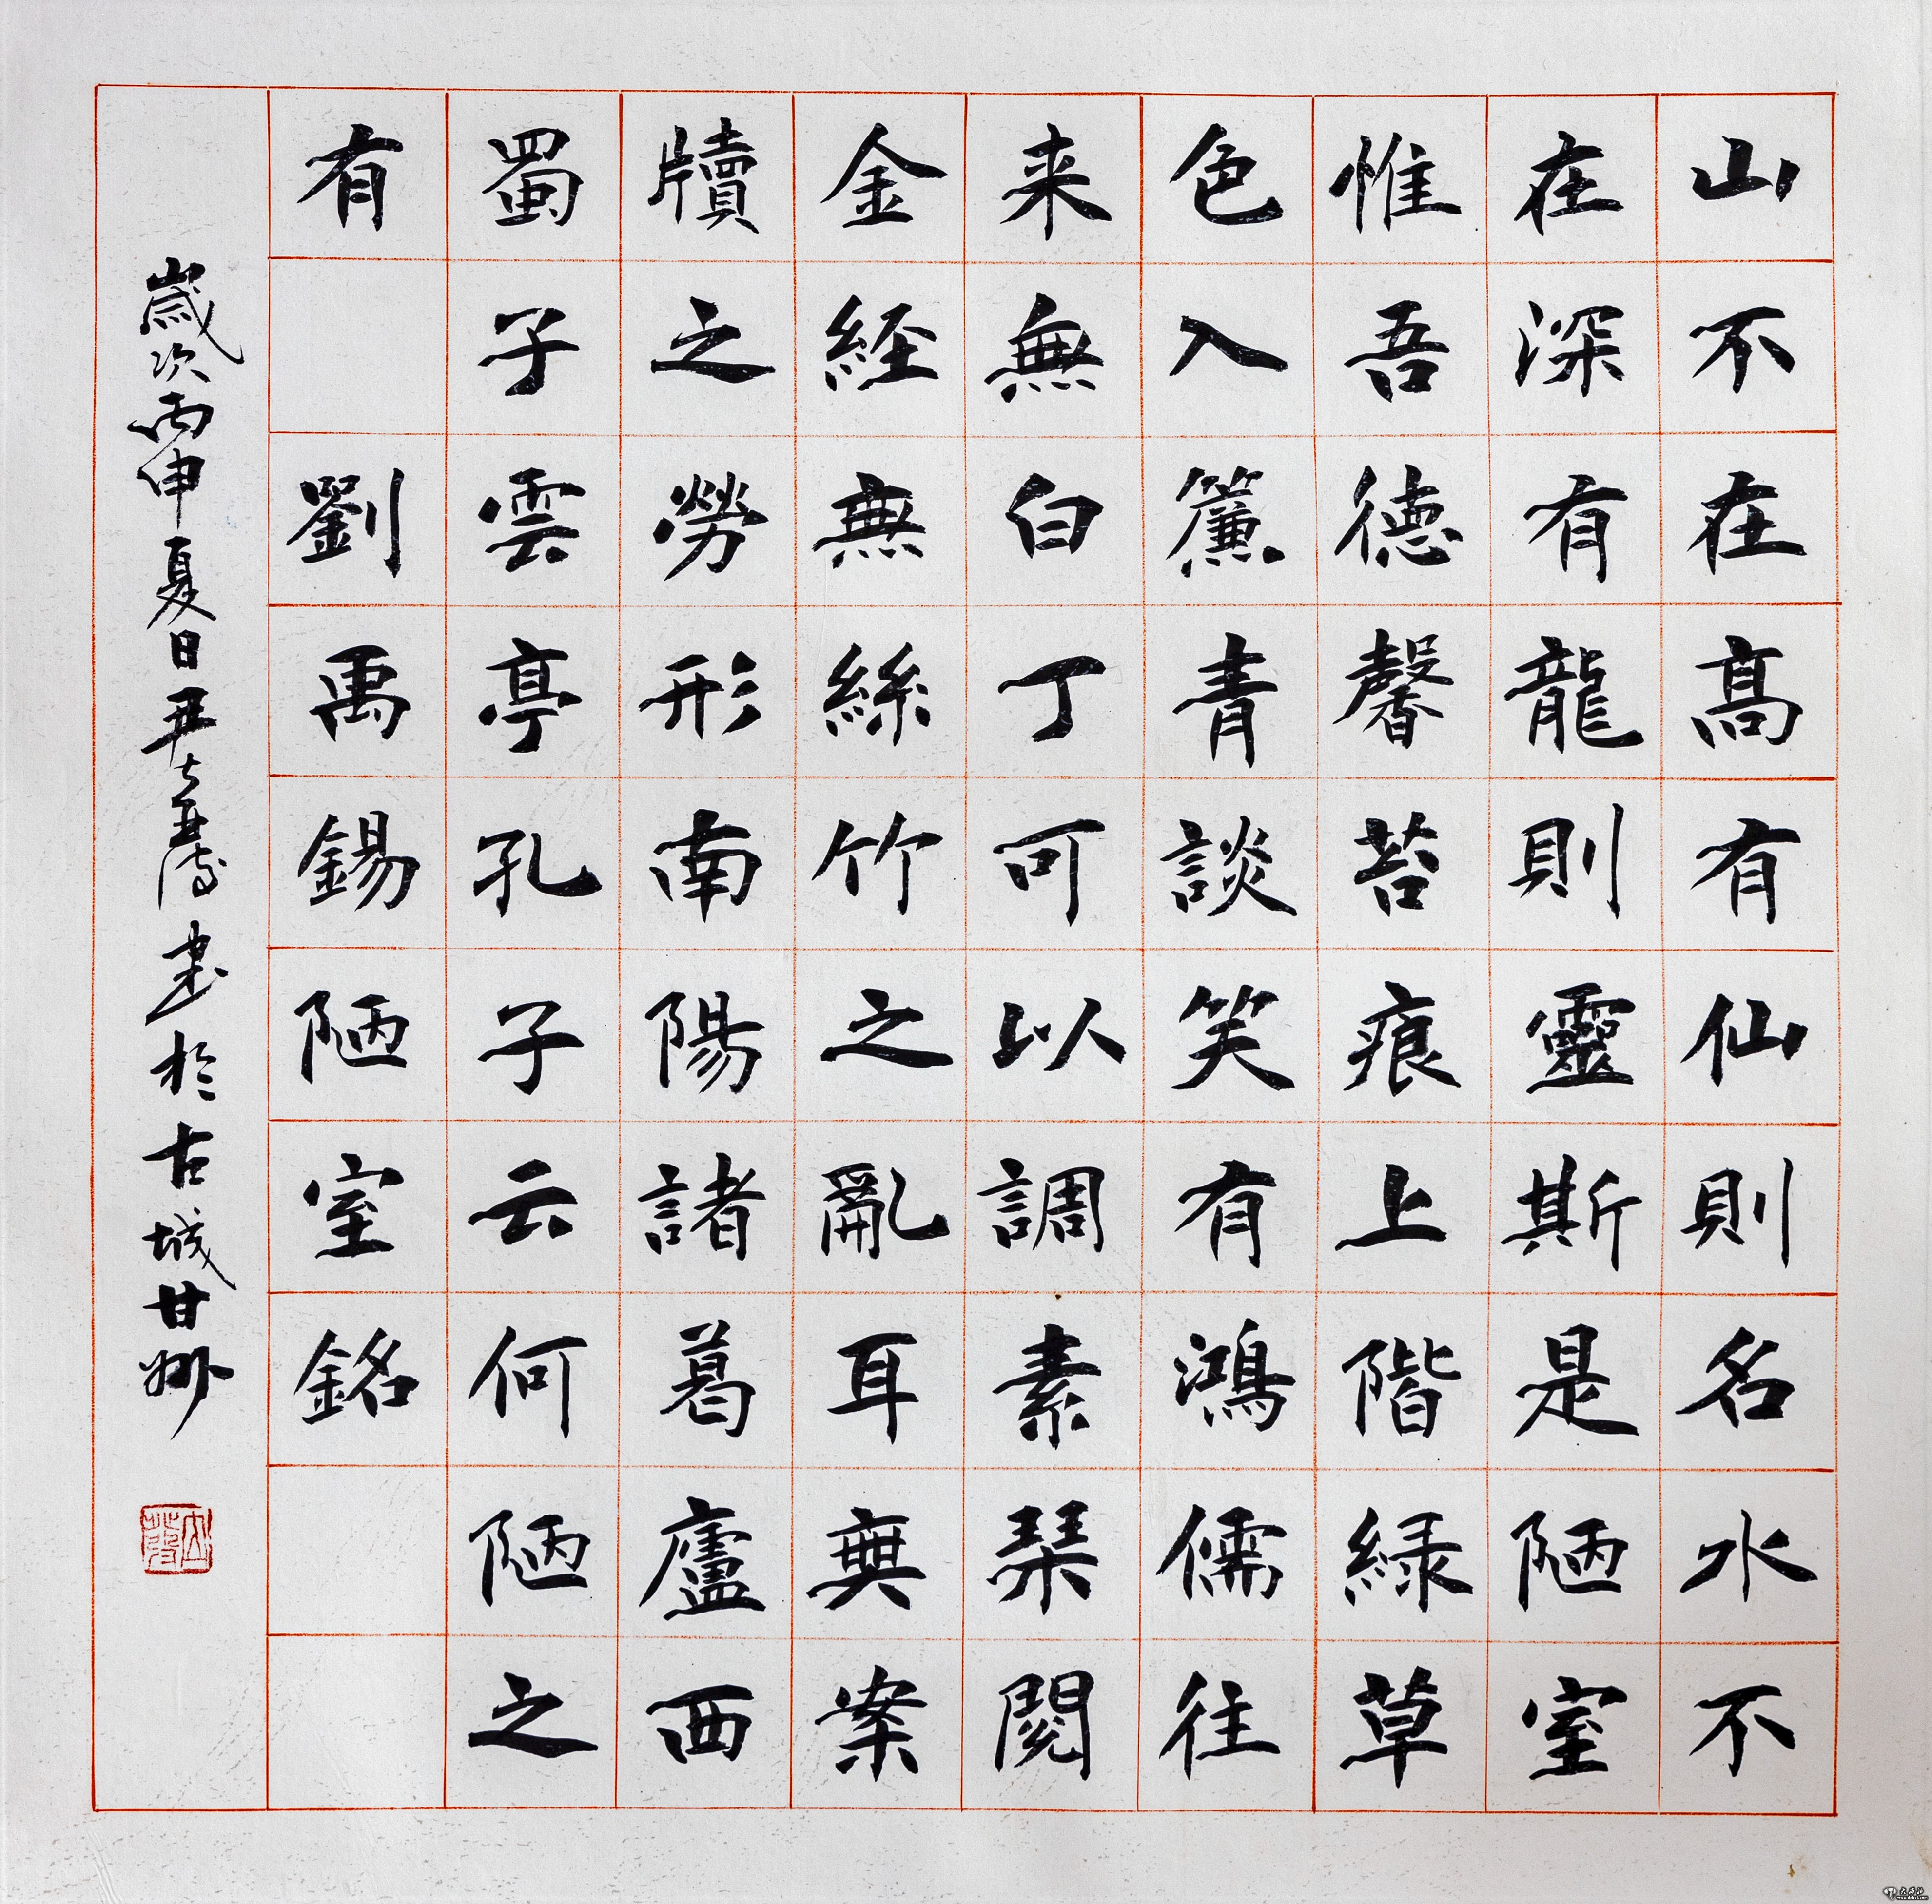 山不在髙有仙則名水不
在深有龍則靈斯是陋室
惟吾德馨苔痕上階緑草
色入簾青談笑有鴻儒往
来無白丁可以調素琴閱
金経無絲竹之亂耳無案
牘之勞形南陽諸葛廬西
蜀子雲亭孔子云何陋之
有 劉禹錫陋室銘
歲次丙申夏日書於古城甘州